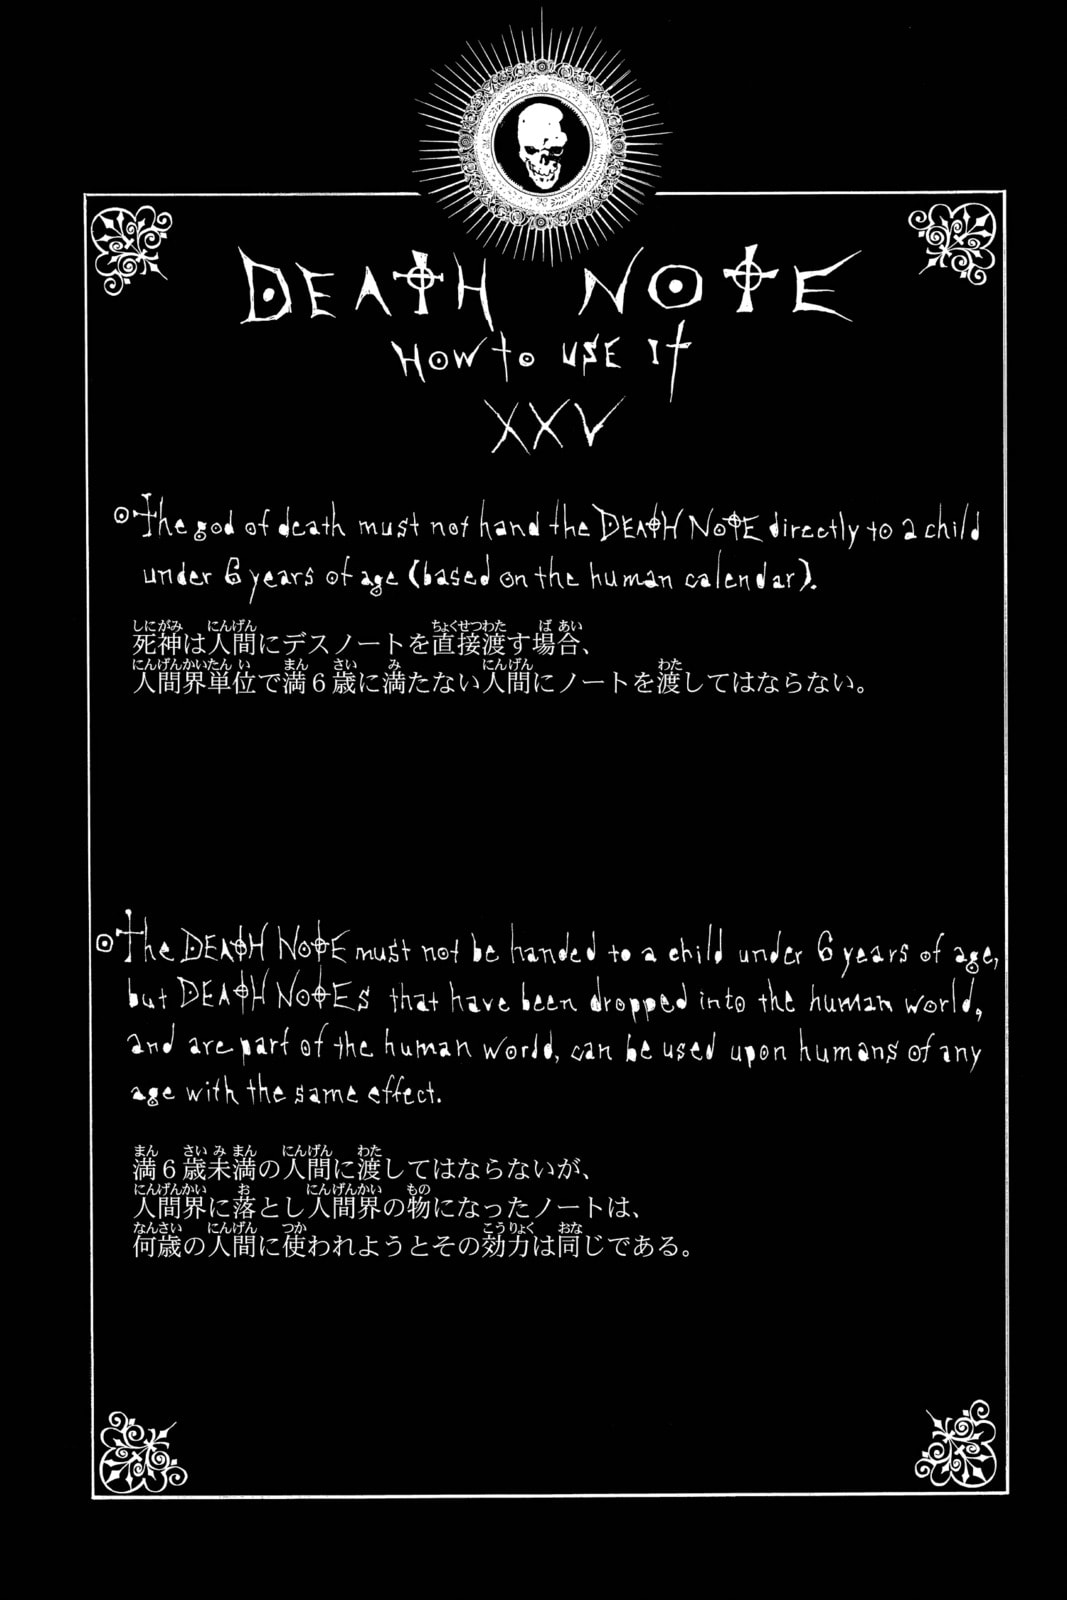 DEATH NOTE
HOW to USE It
XXV
The god of death must not hand the DEATH NOTE directly to a child
under 6 years of age (based on the human calendar).
死神は人間にデスノートを直接渡す場合、
人間界単位で満６歳に満たない人間にノートを渡してはならない。
The DEATH NOTE must not be handed to a child under 6 years of age,
but DEATH NOTES that have been dropped into the human world,
and are part of the human world, can be used upon humans of any
age with the same effect.
満６歳未満の人間に渡してはならないが、
人間界に落とし人間界の物になったノートは、
何歳の人間に使われようとその効力は同じである。